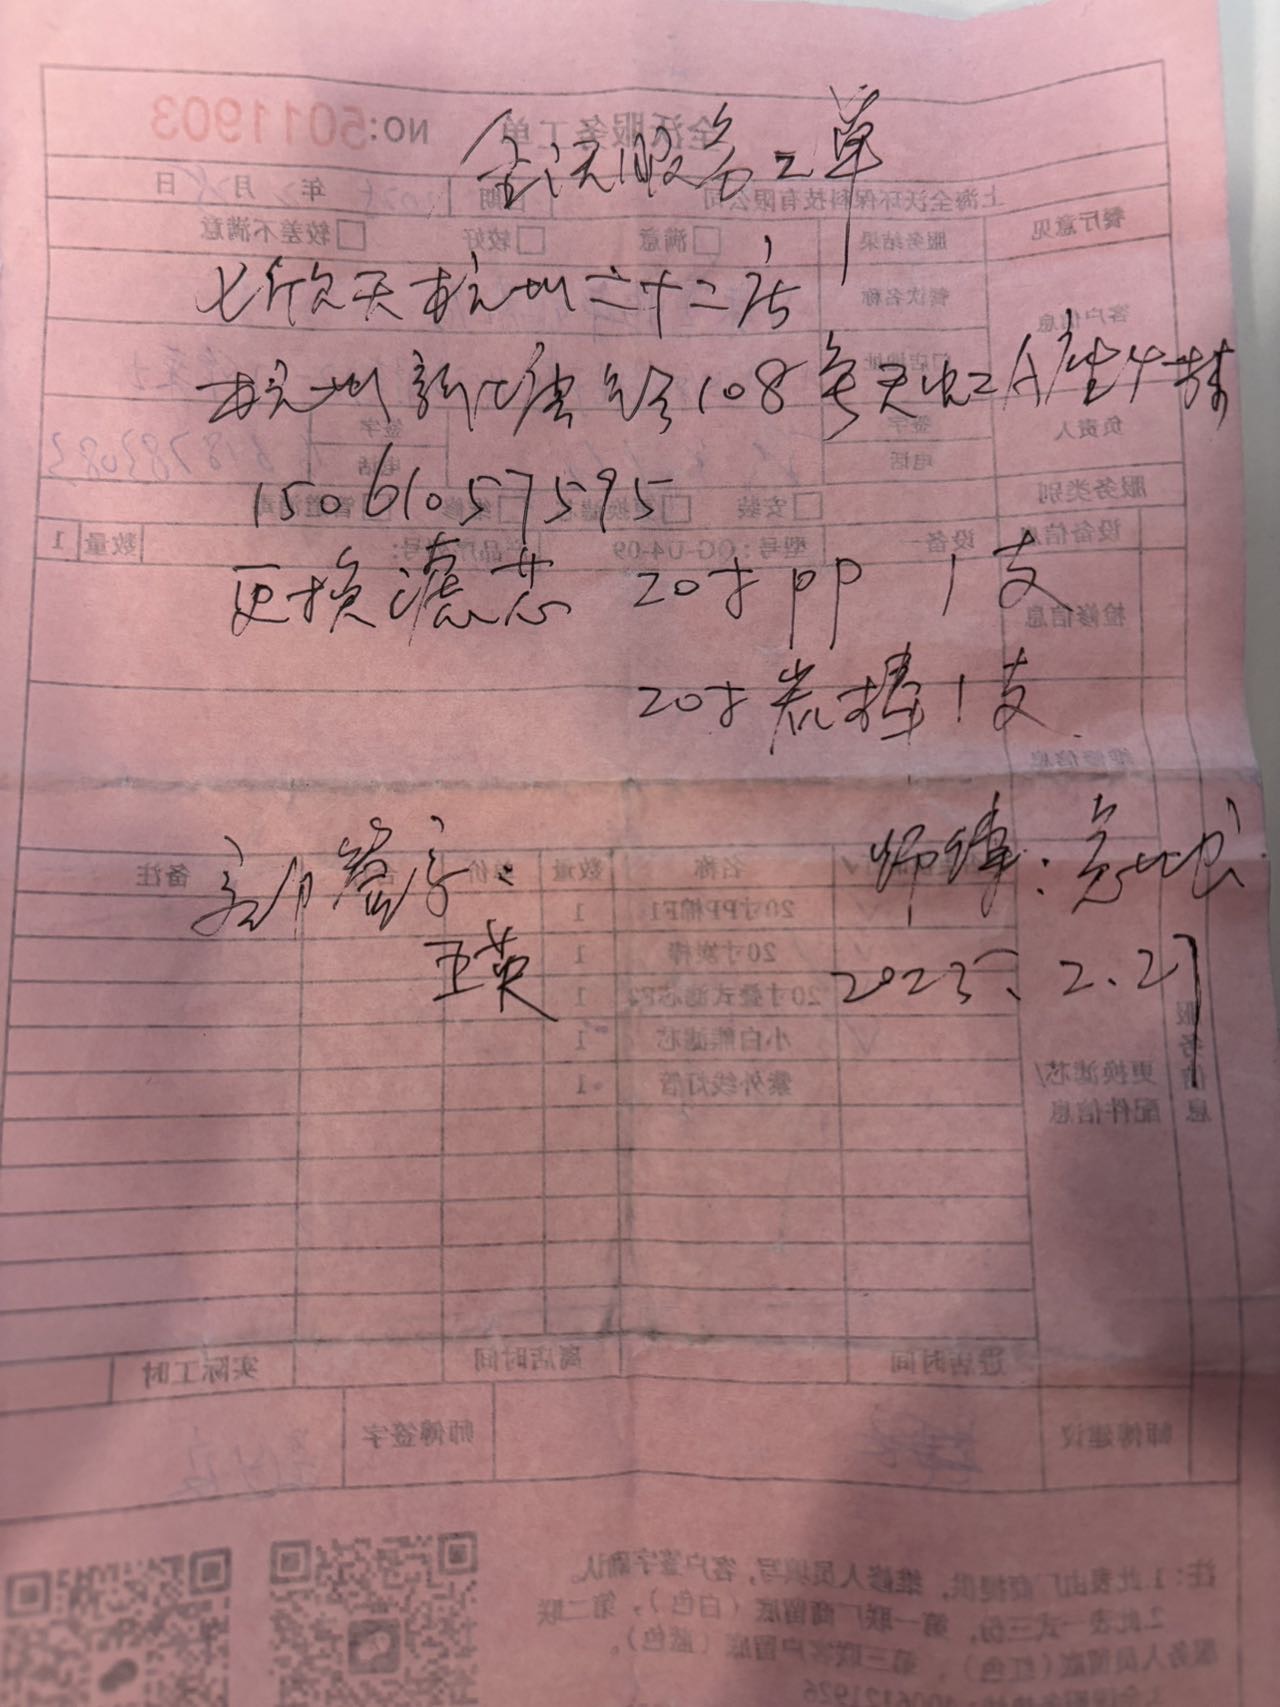 全沃服务工单
七欣天杭州二十二店
杭州新塘路108号天虹A座4栋
15061057595
更换滤芯 20寸PP 1支
20寸炭棒1支
客户签字:
王英
师傅:
2025.2.27
全沃服务工单 NO:5011903
上海全沃环保科技有限公司 日期 年 月 日
餐厅意见 服务结果 满意 较好 较差不满意
客户信息 餐饮名称
门店地址
负责人 签字 签字
电话 电话
服务类别 安装 更换滤芯 维修 管道消毒
设备信息 设备一 型号:QG-U4-09 产品序列号: 数量 1
检修信息
维修信息
名称 数量 单价 备注
20寸PP棉F1 1
20寸炭棒 1
20寸叠式滤芯F2 1
小白熊滤芯 1
紫外线灯管 1
服务信息 更换滤芯/配件信息
进店时间 离店时间 实际工时
师傅建议 师傅签字
注:1.此表由厂商提供,维修人员填写,客户签字确认。
2.此表一式三份,第一联厂商留底(白色),第二联
服务人员留底(红色),第三联客户留底(蓝色)。
4006121926